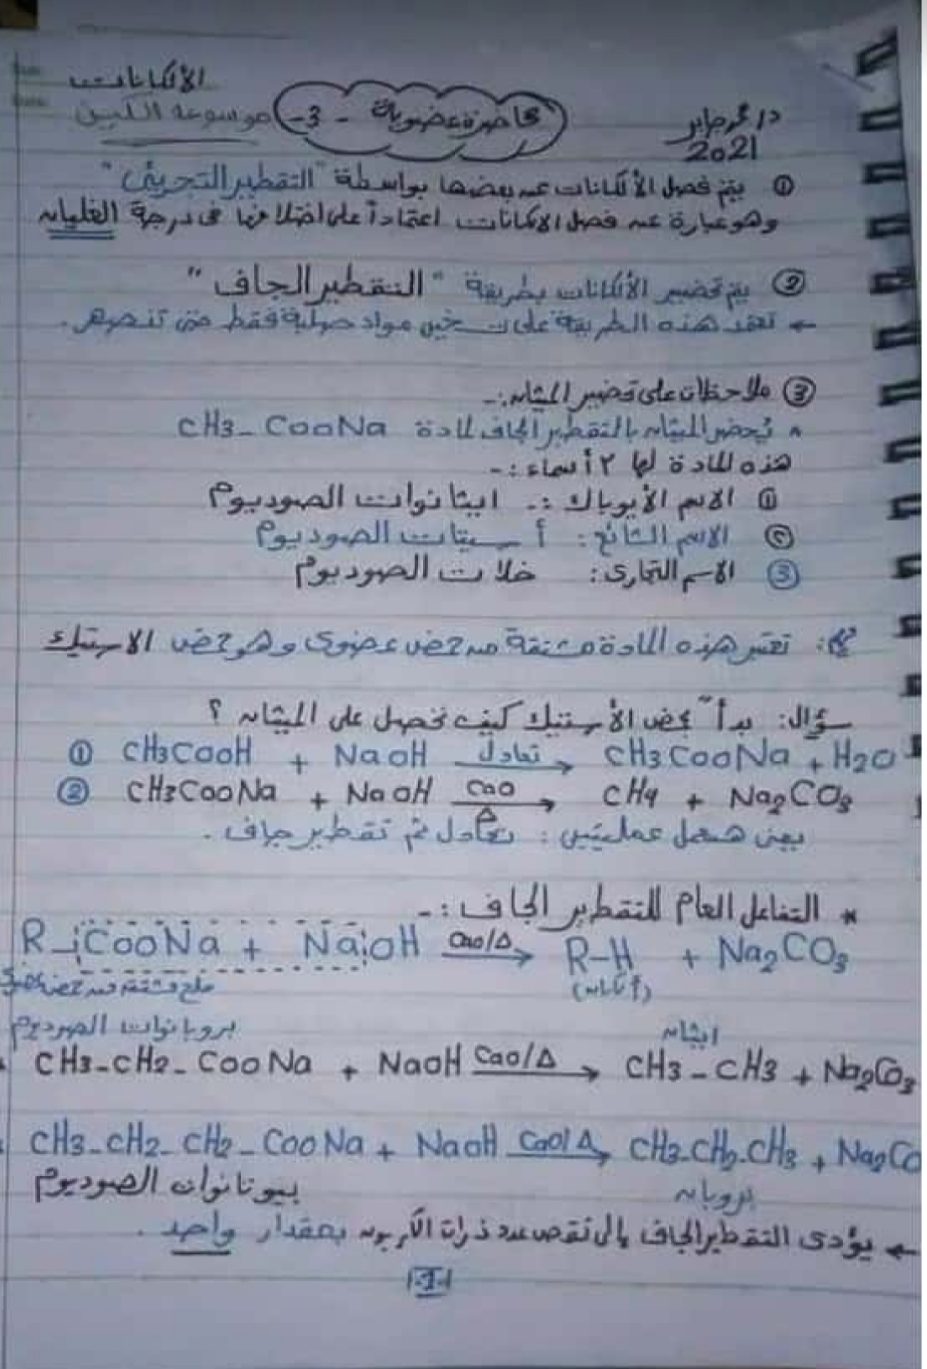 الألكانات
موسوعة اللبين
محاضرة عضوية - 3 -
د/ محمد جابر
2021
① يتم فصل الألكانات عن بعضها بواسطة "التقطير التجزيئي"
وهو عبارة عن فصل الألكانات اعتماداً على اختلافها في درجة الغليان
② يتم تحضير الألكانات بطريقة "التقطير الجاف"
← تعتمد هذه الطريقة على تسخين مواد صلبة فقط حتى تنصهر.
③ ملاحظات على تحضير الميثان:-
^ يُحضر الميثان بالتقطير الجاف لمادة CH3 - COONa
هذه المادة لها ٣ أسماء:-
① الاسم الأيوباك :- ايثانوات الصوديوم
② الاسم الشائع: أسيتات الصوديوم
③ الاسم التجاري: خلات الصوديوم
تعتبر هذه المادة مشتقة من حمض عضوي وهو حمض الاستيك
سؤال: بدأ بحمض الأستيك كيف نحصل على الميثان ؟
① CH3COOH + NaOH تعادل → CH3COONa + H2O
② CH3COONa + NaOH CaO Δ → CH4 + Na2CO3
يعني هنعمل عمليتين: تعادل ثم تقطير جاف.
* التفاعل العام للتقطير الجاف :-
R - COONa + NaOH CaO/Δ → R-H + Na2CO3
ملح مشتق من حمض
(ألكان)
بروبانوات الصوديوم ايثان
CH3-CH2-COONa + NaOH CaO/Δ → CH3-CH3 + Na2CO3
CH3-CH2-CH2-COONa + NaOH CaO/Δ → CH3-CH2-CH3 + Na2CO
بيوتانوات الصوديوم بروبان
← يؤدى التقطير الجاف إلى نقص عدد ذرات الكربون بمقدار واحد.
-1-